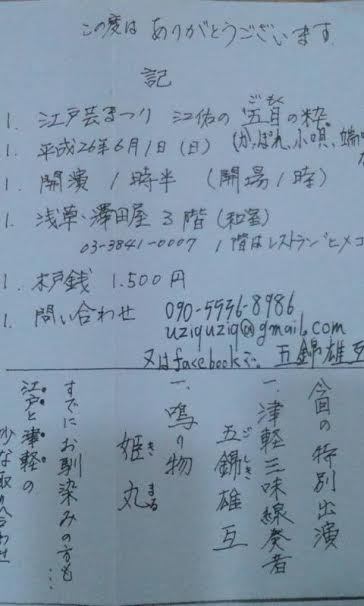 この度は ありがとうございます
記
1. 江戸芸まつり 江佑の五目の粋
ごもく
1. 平成26年6月1日(日) (かっぽれ、小唄、端
1. 開演 1時半 (開場1時)
1. 浅草・澤田屋 3階(和室)
03-3841-0007 1階はレストラン"ヒメコ
1. 木戸銭 1.500円
1. 問い合わせ 090-5556-8986
uziquziq@gmail.com
又はfacebookで。 五錦雄互
今回の特別出演
一、津軽三味線奏者
五錦雄互
ごしき
一、鳴り物
姫丸
きまる
すでにお馴染みの方も…
江戸と津軽の